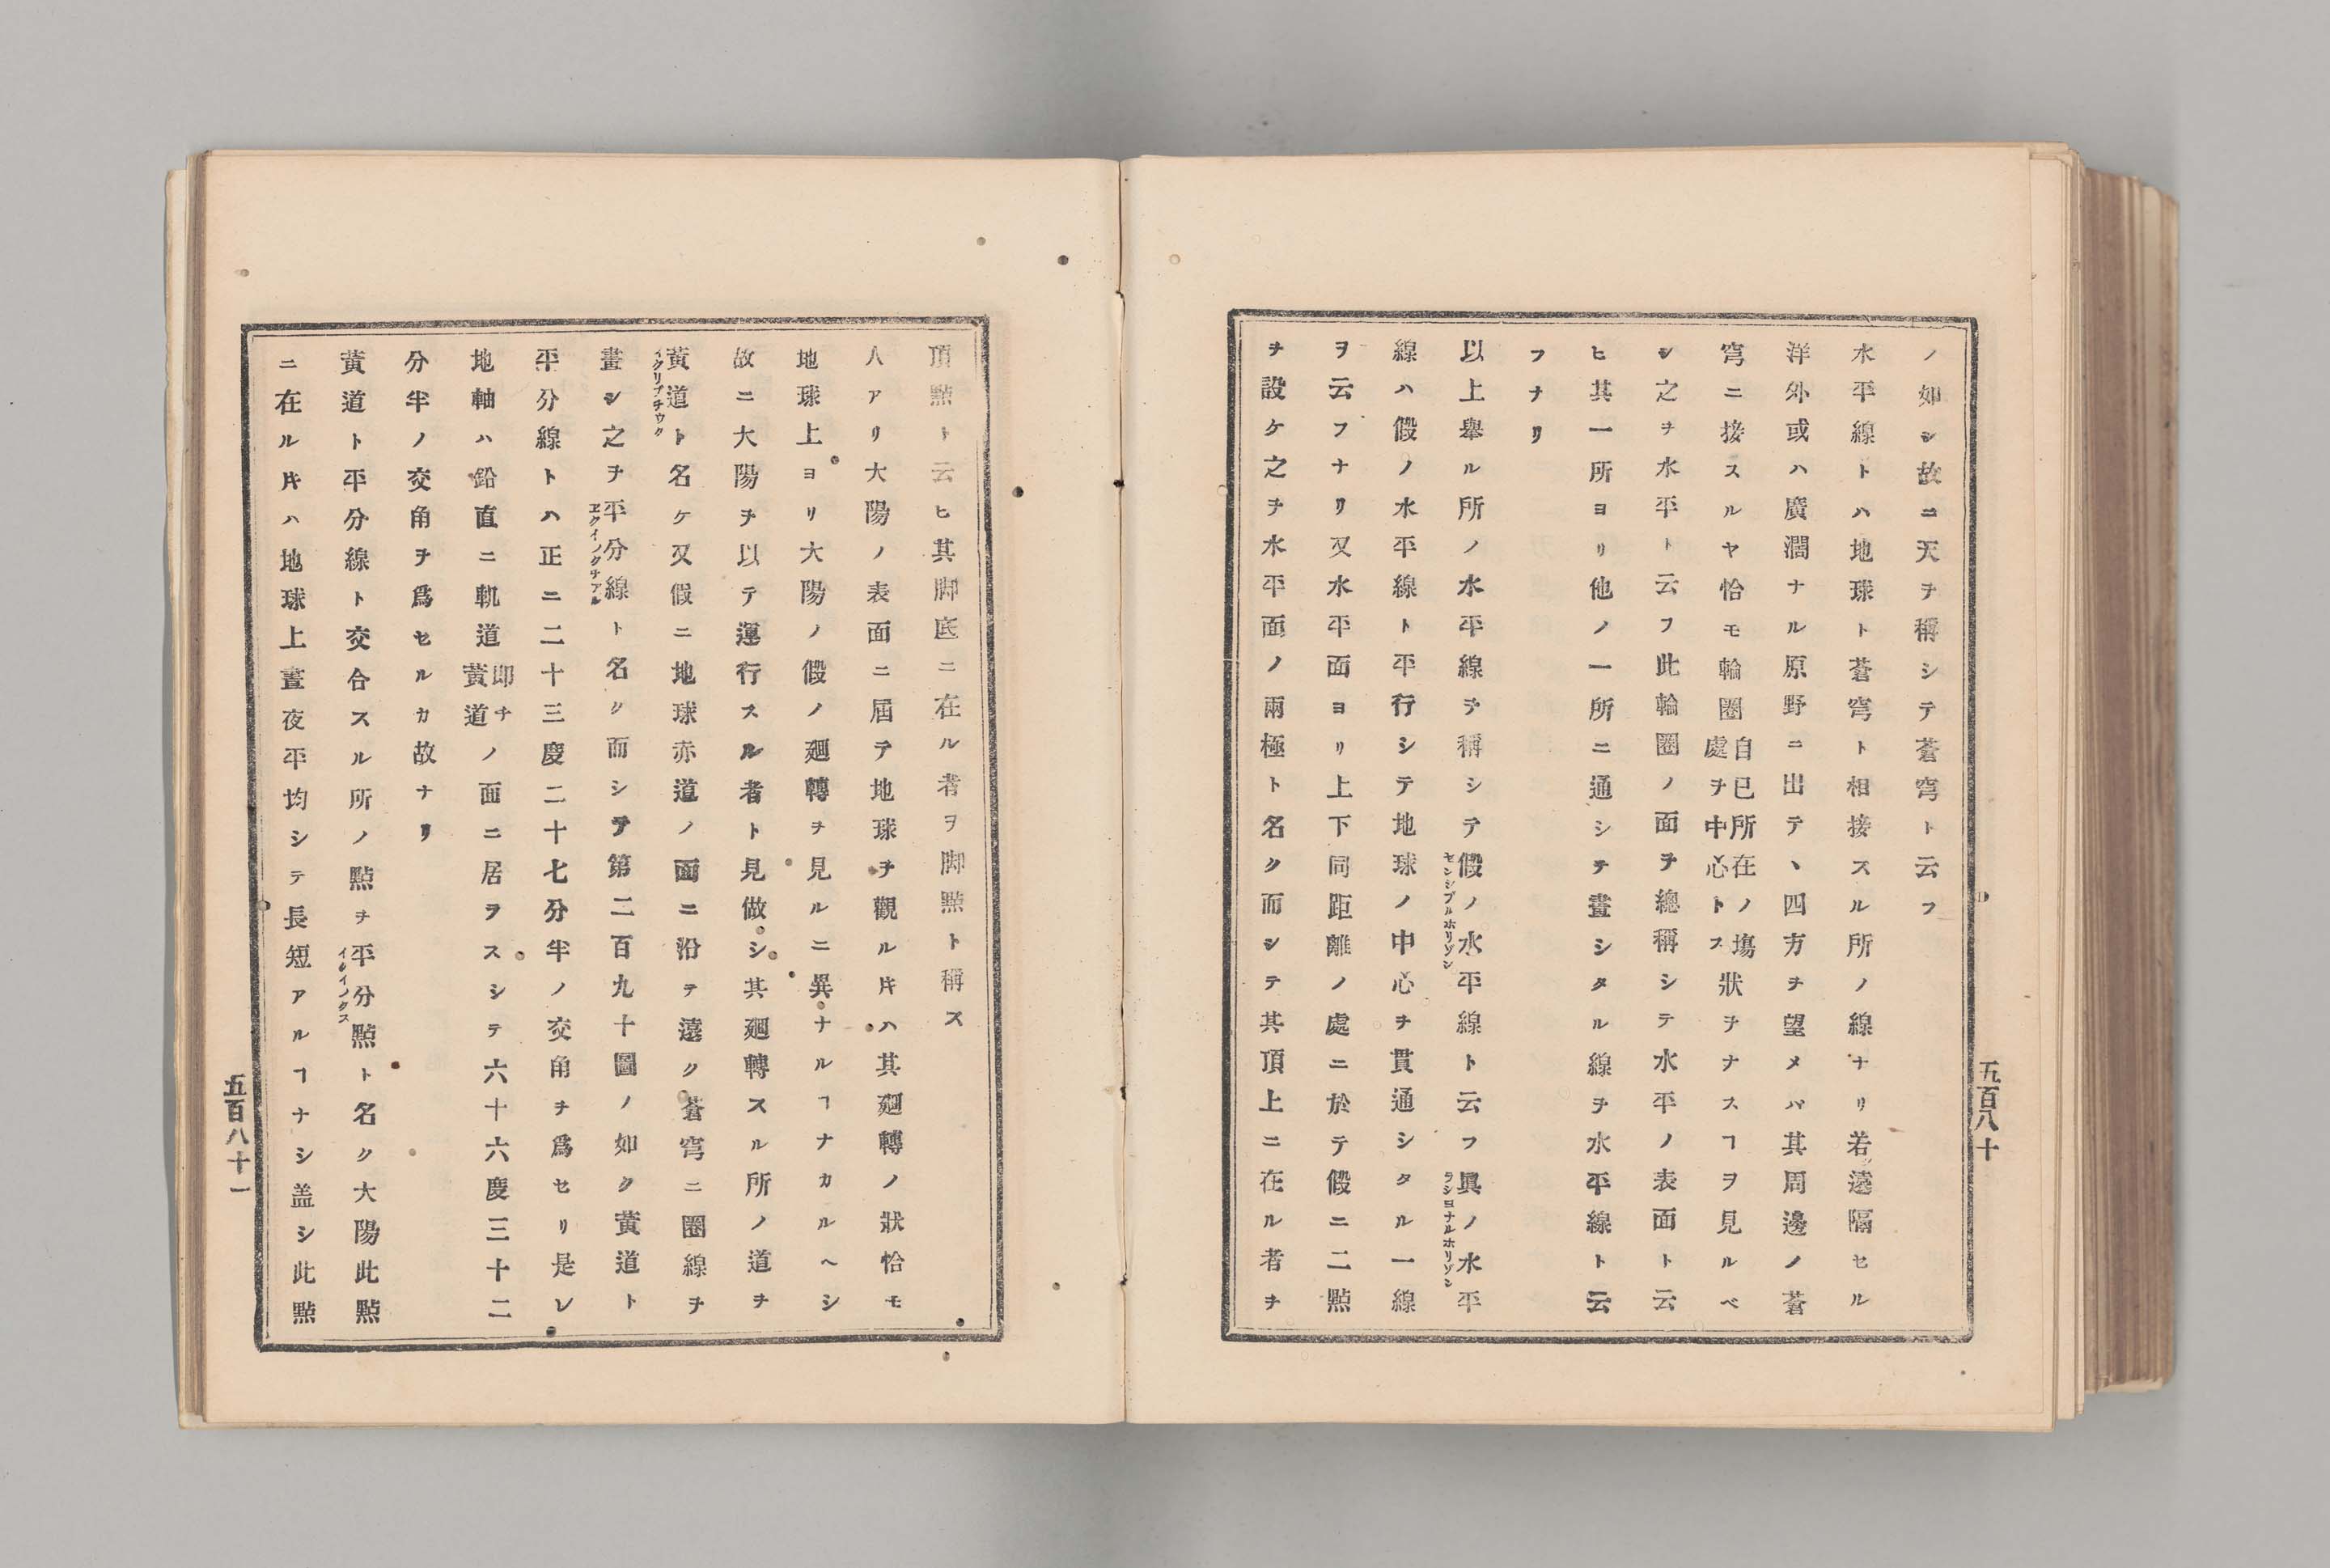 ノ如シ故ニ天ヲ稱シテ蒼穹ト云フ
水平線トハ地球ト蒼穹ト相接スル所ノ線ナリ若シ遠隔セル
洋外或ハ廣濶ナル原野ニ出テヽ四方ヲ望メハ其周邊ノ蒼
穹ニ接スルヤ恰モ輪圈自已所在ノ塲處ヲ中心トス狀ヲナスヿヲ見ルベ
シ之ヲ水平ト云フ此輪圈ノ面ヲ總稱シテ水平ノ表面ト云
ヒ其一所ヨリ他ノ一所ニ通シテ畫シタル線ヲ水平線ト云
フナリ
以上舉ル所ノ水平線ヲ稱シテ假ノ水平線ト云フ眞ノ水平
センシブルホリゾン
ラシヨナルホリゾン
線ハ假ノ水平線ト平行シテ地球ノ中心ヲ貫通シタル一線
ヲ云フナリ又水平面ヨリ上下同距離ノ處ニ於テ假ニ二㸃
ヲ設ケ之ヲ水平面ノ兩極ト名ク而シテ其頂上ニ在ル者ヲ
五百八十
頂㸃ト云ヒ其脚底ニ在ル者ヲ脚㸃ト稱ス
人アリ大陽ノ表面ニ屆テ地球ヲ觀ル片ハ其廻轉ノ狀恰モ
地球上ヨリ大陽ノ假ノ廻轉ヲ見ルニ異ナルヿナカルヘシ
故ニ大陽ヲ以テ運行スル者ト見做シ其廻轉スル所ノ道ヲ
黄道ト名ケ又假ニ地球赤道ノ面ニ沿テ遠ク蒼穹ニ圈線ヲ
イクリプチウク
畫シ之ヲ平分線ト名ク而シテ第二百九十圖ノ如ク黄道ト
エクイノクチアル
平分線トハ正ニ二十三度二十七分半ノ交角ヲ爲セリ是レ
地軸ハ鉛直ニ軌道即チ黄道ノ面ニ居ヲスシテ六十六度三十二
分半ノ交角ヲ爲セルカ故ナリ
黄道ト平分線ト交合スル所ノ㸃ヲ平分㸃ト名ク大陽此㸃
イクイノクス
ニ在ル片ハ地球上晝夜平均シテ長短アルヿナシ盖シ此㸃
五百八十一